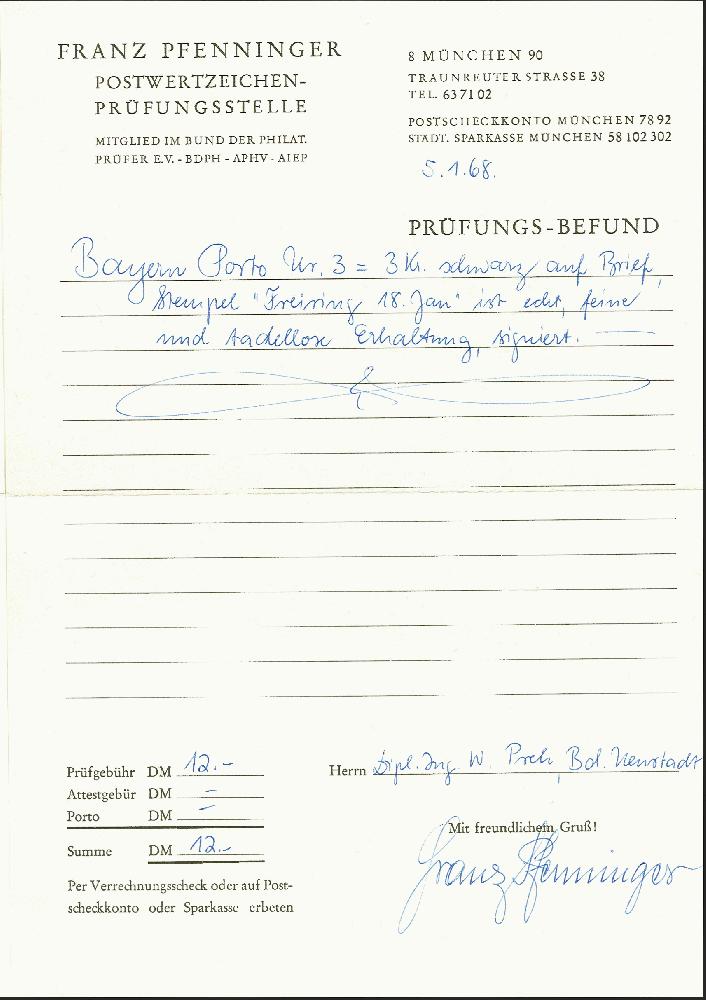 FRANZ PFENNINGER
POSTWERTZEICHEN-
PRÜFUNGSSTELLE
MITGLIED IM BUND DER PHILAT.
PRÜFER E.V. - BDPH - APHV - AIEP
8 MÜNCHEN 90
TRAUNREUTER STRASSE 38
TEL. 63 71 02
POSTSCHECKKONTO MÜNCHEN 78 92
STÄDT. SPARKASSE MÜNCHEN 58 102 302
5.1.68.
PRÜFUNGS-BEFUND
Bayern Porto Nr. 3 = 3 Kr. schwarz auf Brief,
Stempel "Freising 18. Jan" ist echt, feine
und tadellose Erhaltung, signiert.
Prüfgebühr DM 12.-
Attestgebür DM -
Porto DM -
Summe DM 12.-
Per Verrechnungsscheck oder auf Post-
scheckkonto oder Sparkasse erbeten
Herrn Dipl. Ing. W. Bd. Neustadt
Mit freundlichem Gruß!
Franz Pfenninger